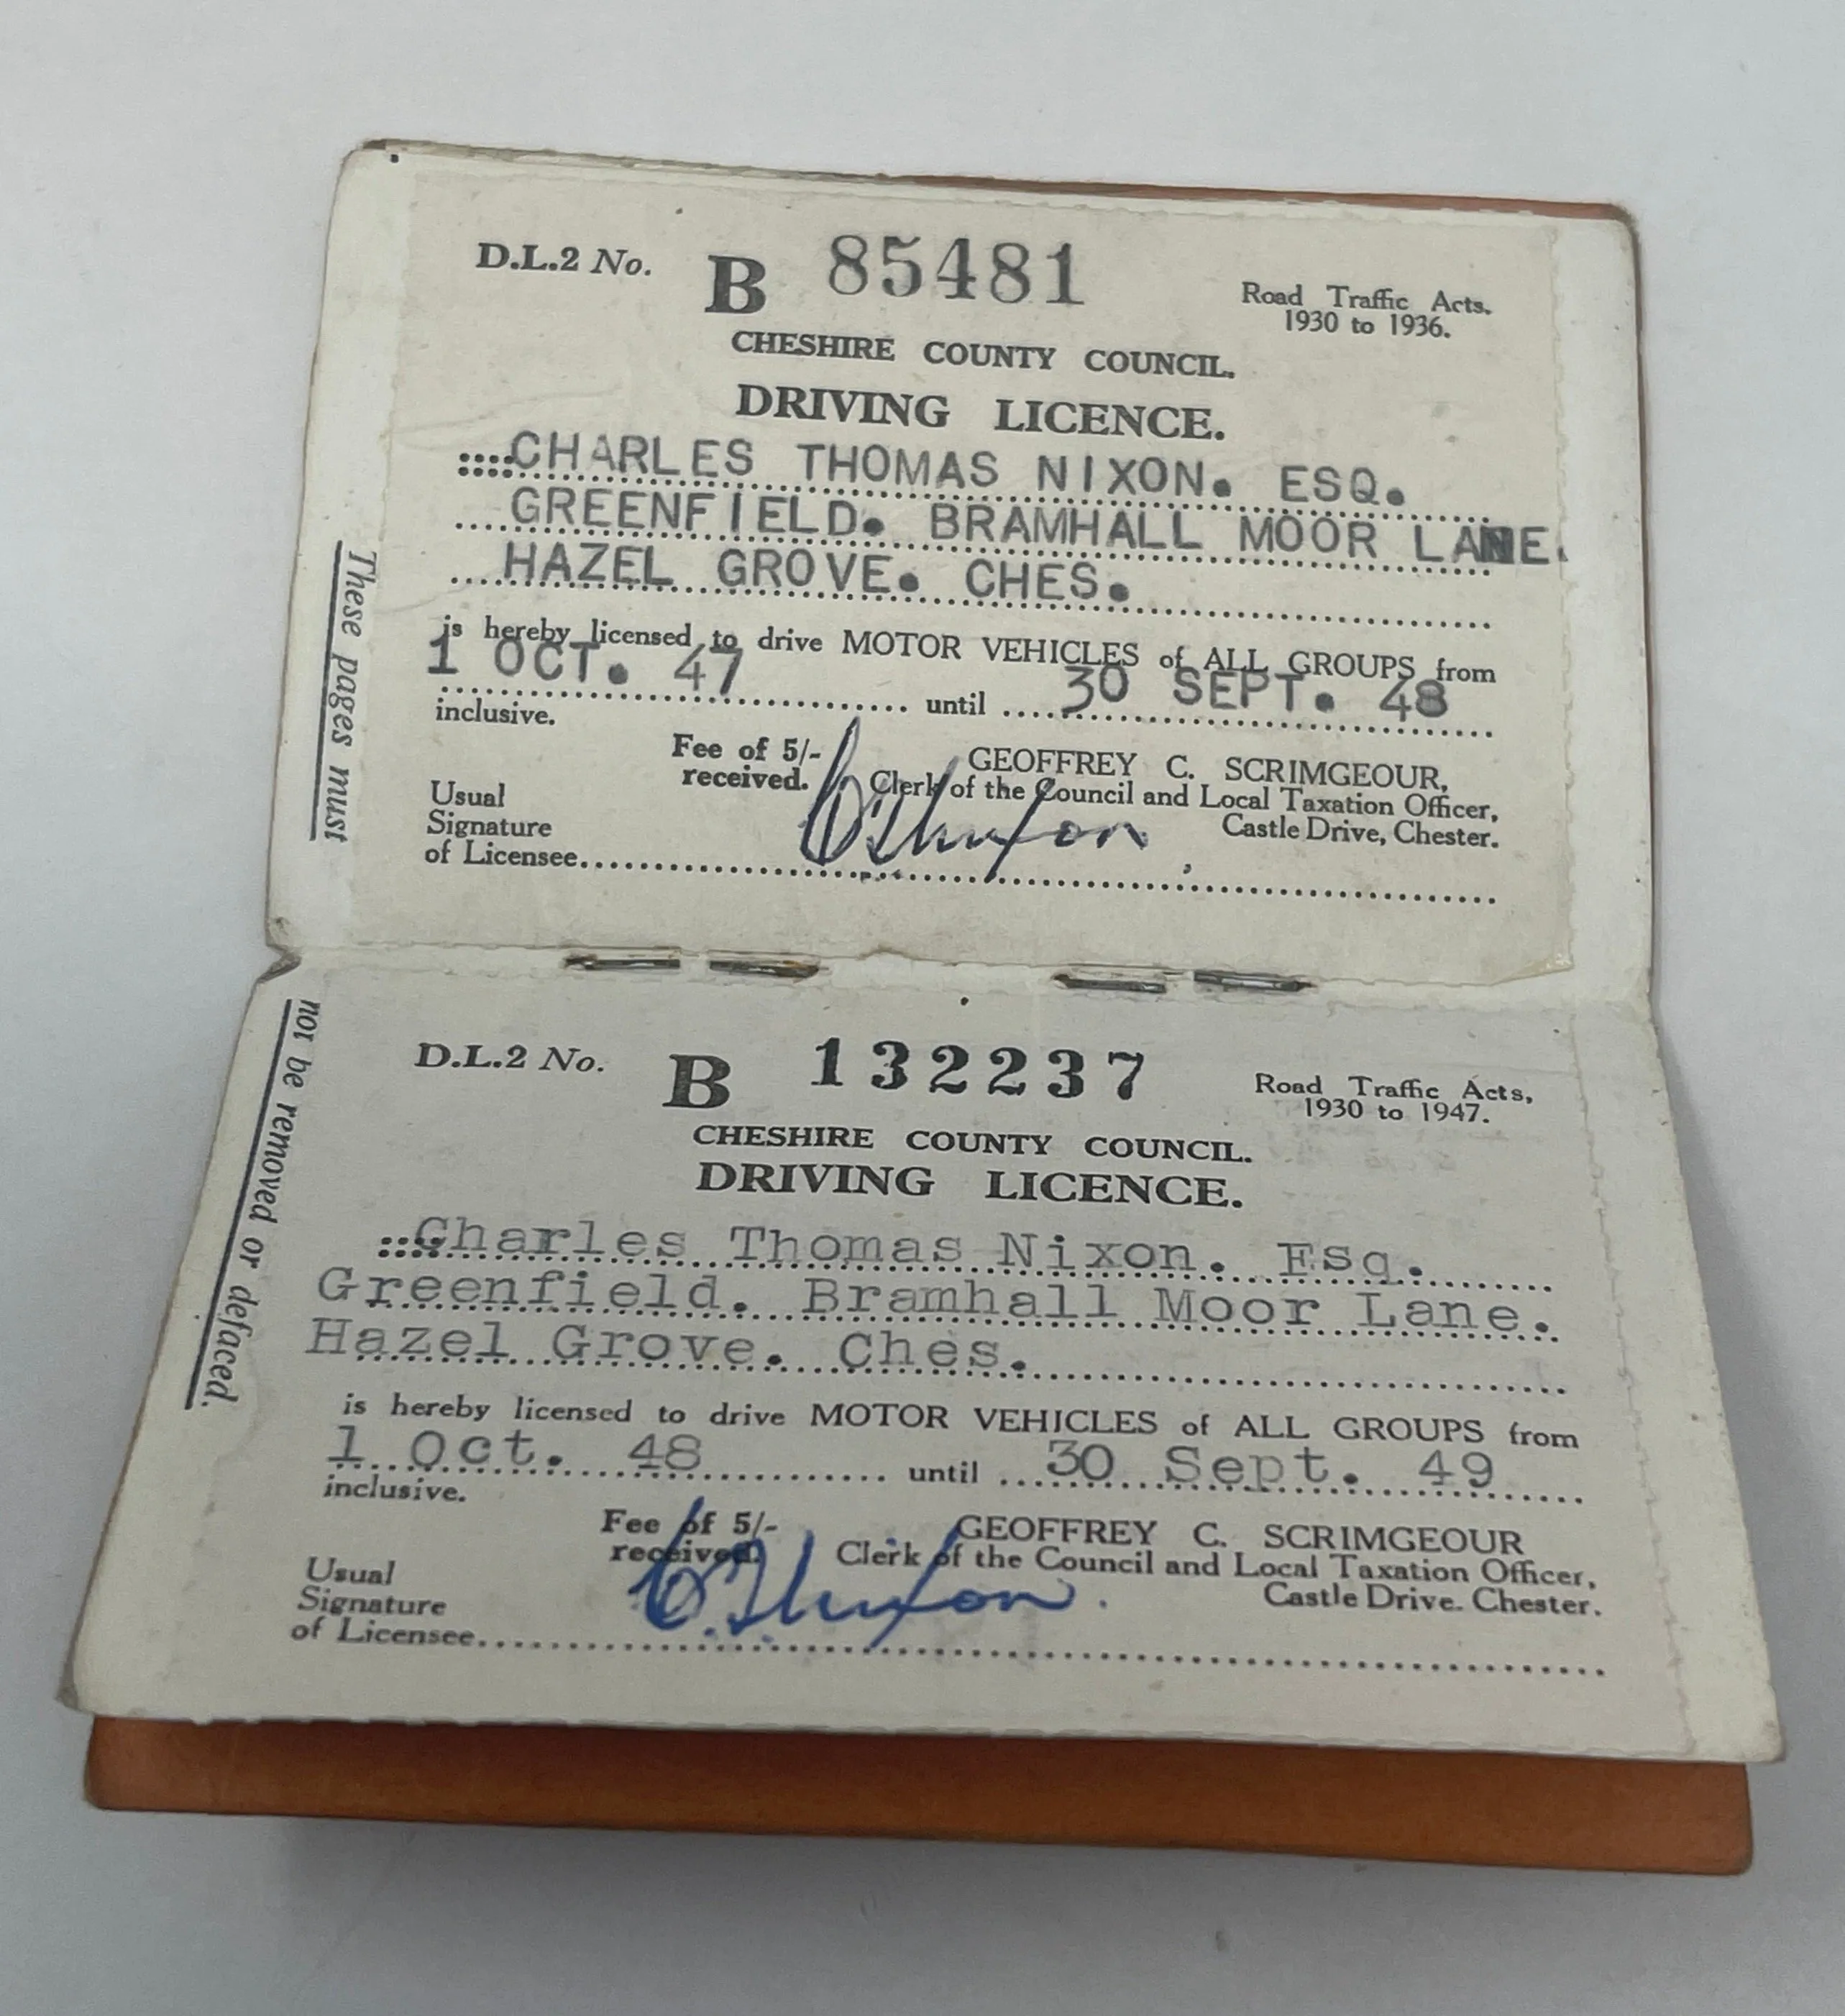 D.L.2 No. B 85481
Road Traffic Acts,
1930 to 1936.
CHESHIRE COUNTY COUNCIL.
DRIVING LICENCE.
CHARLES THOMAS NIXON. ESQ.
GREENFIELD. BRAMHALL MOOR LANE.
HAZEL GROVE. CHES.
is hereby licensed to drive MOTOR VEHICLES of ALL GROUPS from
1 OCT. 47 until 30 SEPT. 48
inclusive.
Fee of 5/-
received.
GEOFFREY C. SCRIMGEOUR,
Clerk of the Council and Local Taxation Officer,
Castle Drive, Chester.
Usual
Signature
of Licensee
C T Nixon
These pages must
D.L.2 No. B 132237
Road Traffic Acts,
1930 to 1947.
CHESHIRE COUNTY COUNCIL.
DRIVING LICENCE.
Charles Thomas Nixon. Esq.
Greenfield. Bramhall Moor Lane.
Hazel Grove. Ches.
is hereby licensed to drive MOTOR VEHICLES of ALL GROUPS from
1 Oct. 48 until 30 Sept. 49
inclusive.
Fee of 5/-
received.
GEOFFREY C. SCRIMGEOUR
Clerk of the Council and Local Taxation Officer,
Castle Drive. Chester.
Usual
Signature
of Licensee
C. T Nixon.
not be removed or defaced.